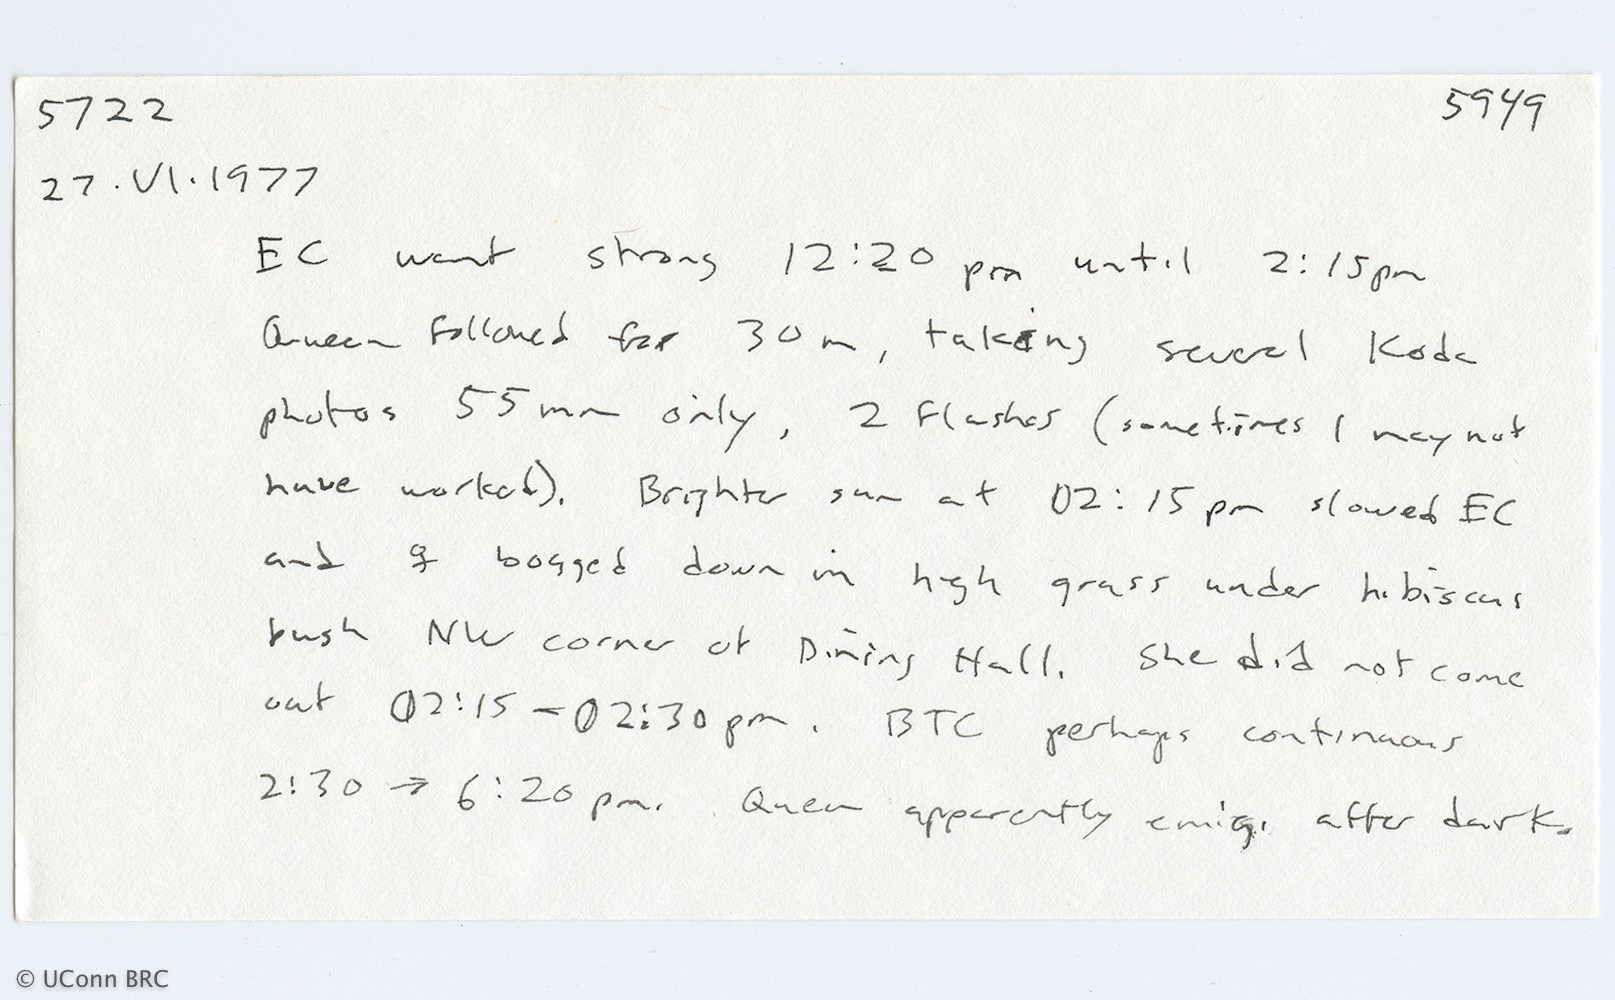 5722 5949
27.VI.1977
EC went strong 12:20 pm until 2:15pm
Queen followed for 30m, taking several Koda
photos 55mm only, 2 flashes (sometimes 1 may not
have worked). Brighter sun at 02:15pm slowed EC
and ♀ bogged down in high grass under hibiscus
bush NW corner of Dining Hall. She did not come
out 02:15-02:30pm. BTC perhaps continuous
2:30 → 6:20pm. Queen apparently emig. after dark.
© UConn BRC